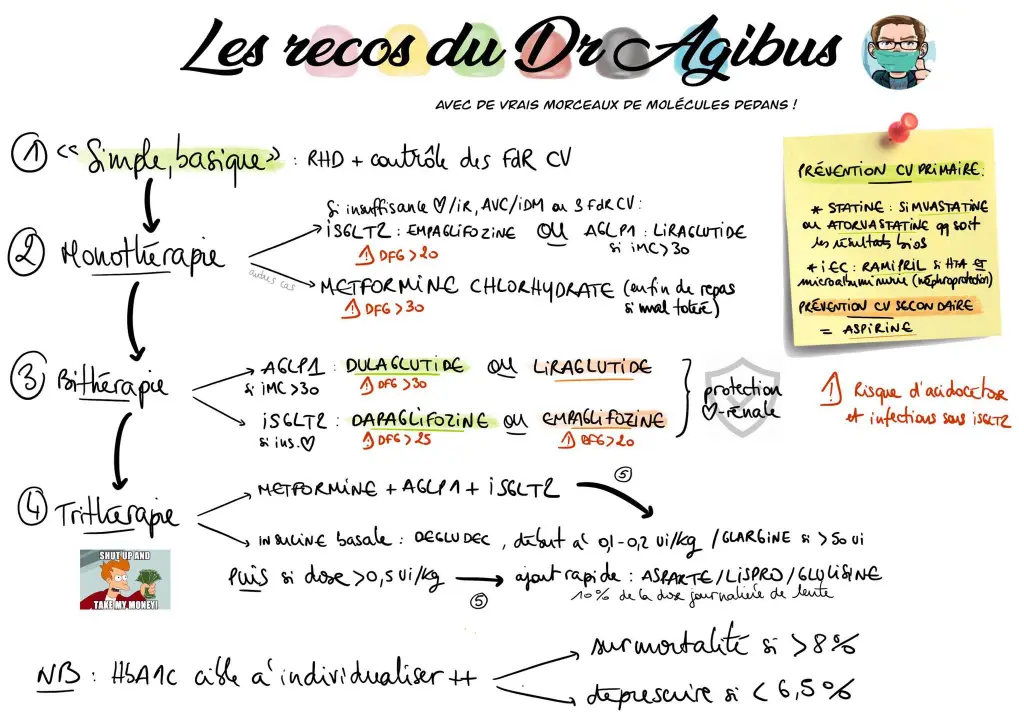 Les recos du Dr Agibus
AVEC DE VRAIS MORCEAUX DE MOLÉCULES DEDANS !
① « Simple, basique » : RHD + contrôle des FdR CV
② Monothérapie
Si insuffisance ♡/iR, AVC/iDM ou 3 FdRCV :
iSGLT2 : EMPAGLIFOZINE OU AGLP1 : LIRAGLUTIDE
⚠ DFG > 20
si iMC > 30
autres cas
METFORMINE CHLORHYDRATE (en fin de repas
si mal toléré)
⚠ DFG > 30
③ Bithérapie
AGLP1 : DULAGLUTIDE OU LIRAGLUTIDE
si iMC > 30
⚠ DFG > 30
iSGLT2 : DAPAGLIFOZINE ou EMPAGLIFOZINE
si ins. ♡
⚠ DFG > 25
⚠ DFG > 20
protection
♡-rénale
⚠ Risque d'acidocétose
et infections sous iSGLT2
④ Trithérapie
METFORMINE + AGLP1 + iSGLT2
⑤
INSULINE basale : DEGLUDEC, début à 0,1-0,2 ui/kg /GLARGINE si > 50 ui
Puis si dose > 0,5 ui/kg
⑤
ajout rapide : ASPARTE/LISPRO/GLULISINE
10% de la dose journalière de lente
SHUT UP AND
TAKE MY MONEY!
NB : HbA1c cible à individualiser ++
surmortalité si > 8%
déprescrire si < 6,5%
PRÉVENTION CV PRIMAIRE :
* STATINE : SIMVASTATINE
ou ATORVASTATINE qq soit
les résultats bios
* iEC : RAMIPRIL si HTA et
microalbuminurie (néphroprotection)
PRÉVENTION CV SECONDAIRE
= ASPIRINE